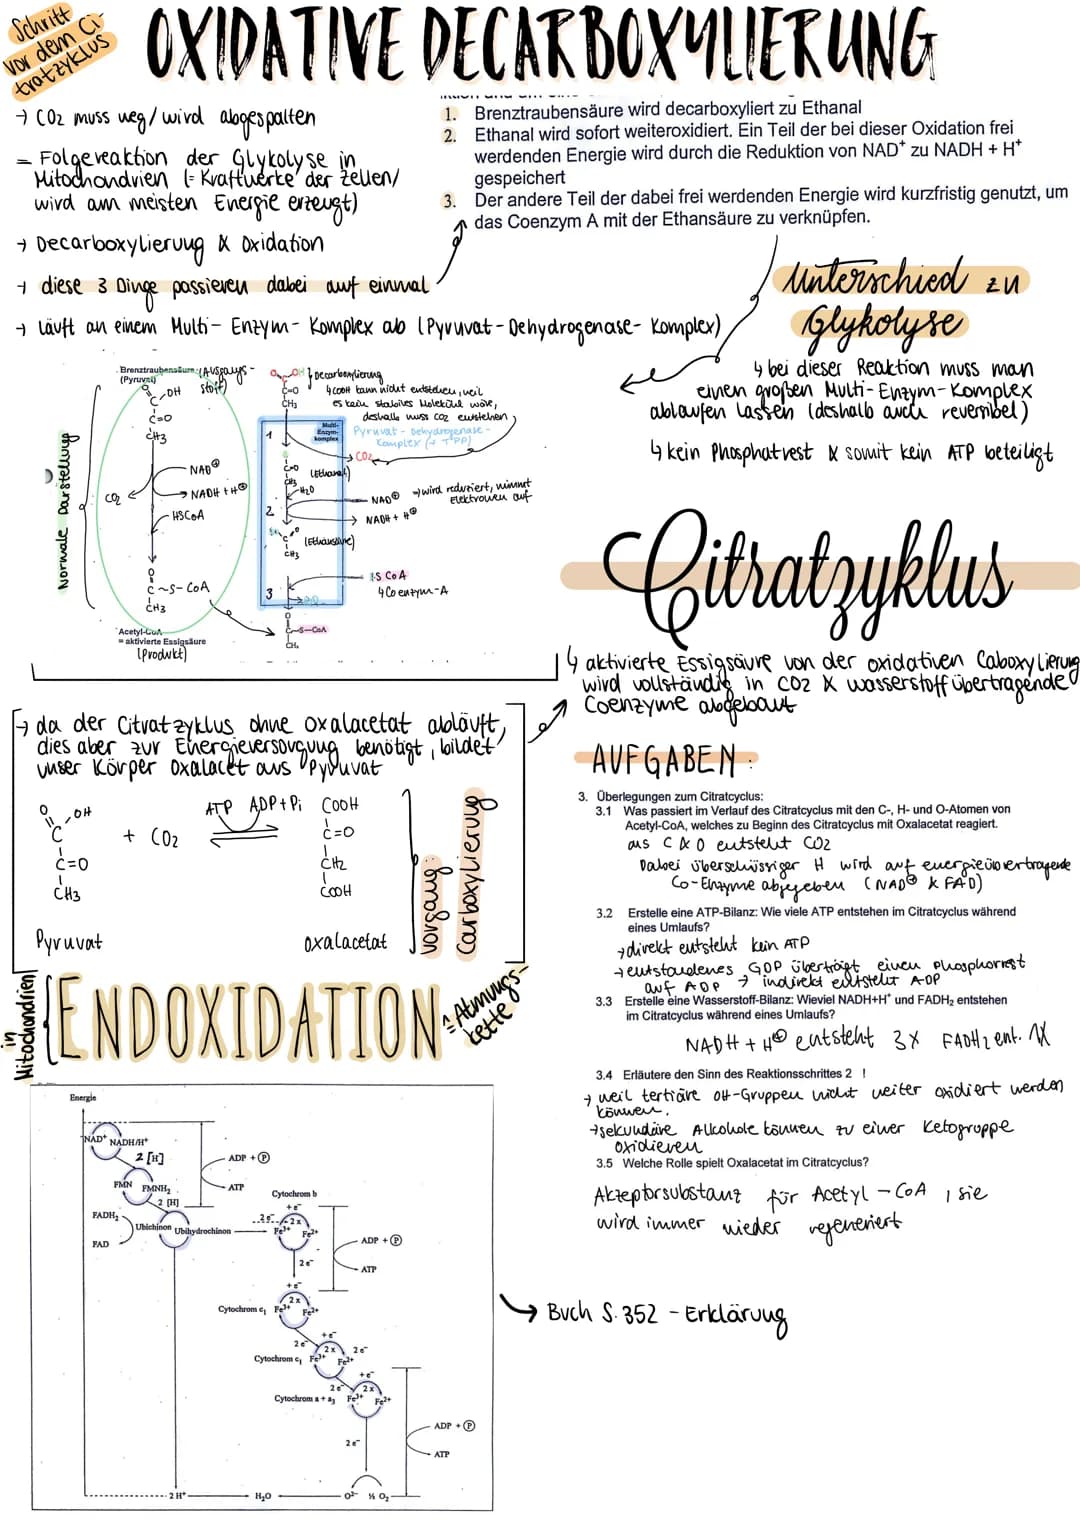 Schritt
vor dem Ci-
tratzyklus
OXIDATIVE DECARBOXYLIERUNG
→ CO2 muss weg/ wird abgespalten
= Folgereaktion der Glykolyse in
Mitochondrien (= Kraftwerke der Zellen/
wird am meisten Energie erzeugt)
→ Decarboxylierung & Oxidation
→ diese 3 Dinge passieren dabei auf einmal
→ läuft an einem Multi-Enzym-Komplex ab (Pyruvat-Dehydrogenase-Komplex)
1. Brenztraubensäure wird decarboxyliert zu Ethanal
2. Ethanal wird sofort weiteroxidiert. Ein Teil der bei dieser Oxidation frei
werdenden Energie wird durch die Reduktion von NAD⁺ zu NADH + H⁺
gespeichert
3. Der andere Teil der dabei frei werdenden Energie wird kurzfristig genutzt, um
das Coenzym A mit der Ethansäure zu verknüpfen.
Unterschied zu
Glykolyse
↳ bei dieser Reaktion muss man
einen großen Multi-Enzym-Komplex
ablaufen lassen (deshalb auch reversibel)
↳ kein Phosphatrest & somit kein ATP beteiligt
Normale Darstellung
Brenztraubensäure (Ausgangs-
(Pyruvat) stoff)
O
C-OH
C=O
CH3
NAD⊕
CO2
NADH + H⊕
HSCoA
O
C~S-CoA
CH3
Acetyl-CoA
= aktivierte Essigsäure
(Produkt)
O OH } Decarboxylierung
C=O
CH3
↳ COOH kann nicht entstehen, weil
es kein stabiles Molekül wäre,
deshalb muss CO2 entstehen
Multi-
Enzym-
komplex
Pyruvat-Dehydrogenase-
Komplex (→ TPP)
1
CO2
C=O (Ethanal)
CH3
H2O
2
NAD⊕ → wird reduziert, nimmt
Elektronen auf
NADH + H⊕
(Ethansäure)
CH3
3
HS CoA
↳ Coenzym-A
O
C-S-CoA
CH3
Citratzyklus
↳ aktivierte Essigsäure von der oxidativen Caboxylierung
wird vollständig in CO2 & wasserstoffübertragende
Coenzyme abgebaut
→ da der Citratzyklus ohne Oxalacetat abläuft,
dies aber zur Energieversorgung benötigt, bildet
unser Körper Oxalacet aus Pyruvat
O OH
C
C=O
CH3
+ CO2
ATP ADP+Pi
COOH
C=O
CH2
COOH
Pyruvat
Oxalacetat
Vorgang:
Carboxylierung
AUFGABEN:
3. Überlegungen zum Citratcyclus:
3.1 Was passiert im Verlauf des Citratcyclus mit den C-, H- und O-Atomen von
Acetyl-CoA, welches zu Beginn des Citratcyclus mit Oxalacetat reagiert.
aus C & O entsteht CO2
Dabei überschüssiger H wird auf energieübertragende
Co-Enzyme abgegeben (NAD⊕ & FAD)
3.2 Erstelle eine ATP-Bilanz: Wie viele ATP entstehen im Citratcyclus während
eines Umlaufs?
→ direkt entsteht kein ATP
→ entstandenes GDP überträgt einen Phosphorrest
auf ADP → indirekt entsteht ADP
3.3 Erstelle eine Wasserstoff-Bilanz: Wieviel NADH+H⁺ und FADH₂ entstehen
im Citratcyclus während eines Umlaufs?
NADH + H⊕ entsteht 3x FADH2 ent. 1x
3.4 Erläutere den Sinn des Reaktionsschrittes 2 !
→ weil tertiäre OH-Gruppen nicht weiter oxidiert werden
können.
→ sekundäre Alkohole können zu einer Ketogruppe
oxidieren
3.5 Welche Rolle spielt Oxalacetat im Citratcyclus?
Akzeptorsubstanz für Acetyl-CoA, sie
wird immer wieder regeneriert
in
Mitochondrien
ENDOXIDATION
= Atmungs-
kette
Energie
NAD⁺ NADH/H⁺
2 [H]
ADP + (P)
FMN FMNH₂
ATP
2 [H]
FADH₂
Ubichinon Ubihydrochinon
FAD
Cytochrom b
+e⁻
2e⁻ 2x
Fe³⁺ Fe²⁺
ADP + (P)
2e⁻
ATP
+e⁻
2x
Cytochrom c₁ Fe³⁺ Fe²⁺
+e⁻
2e⁻ 2x 2e⁻
Cytochrom c₁ Fe³⁺ Fe²⁺
+e⁻
2e⁻ 2x
Cytochrom a + a₃ Fe³⁺ Fe²⁺
ADP + (P)
2e⁻
ATP
2 H⁺ H₂O O²⁻ ½ O₂
→ Buch S. 352 - Erklärung